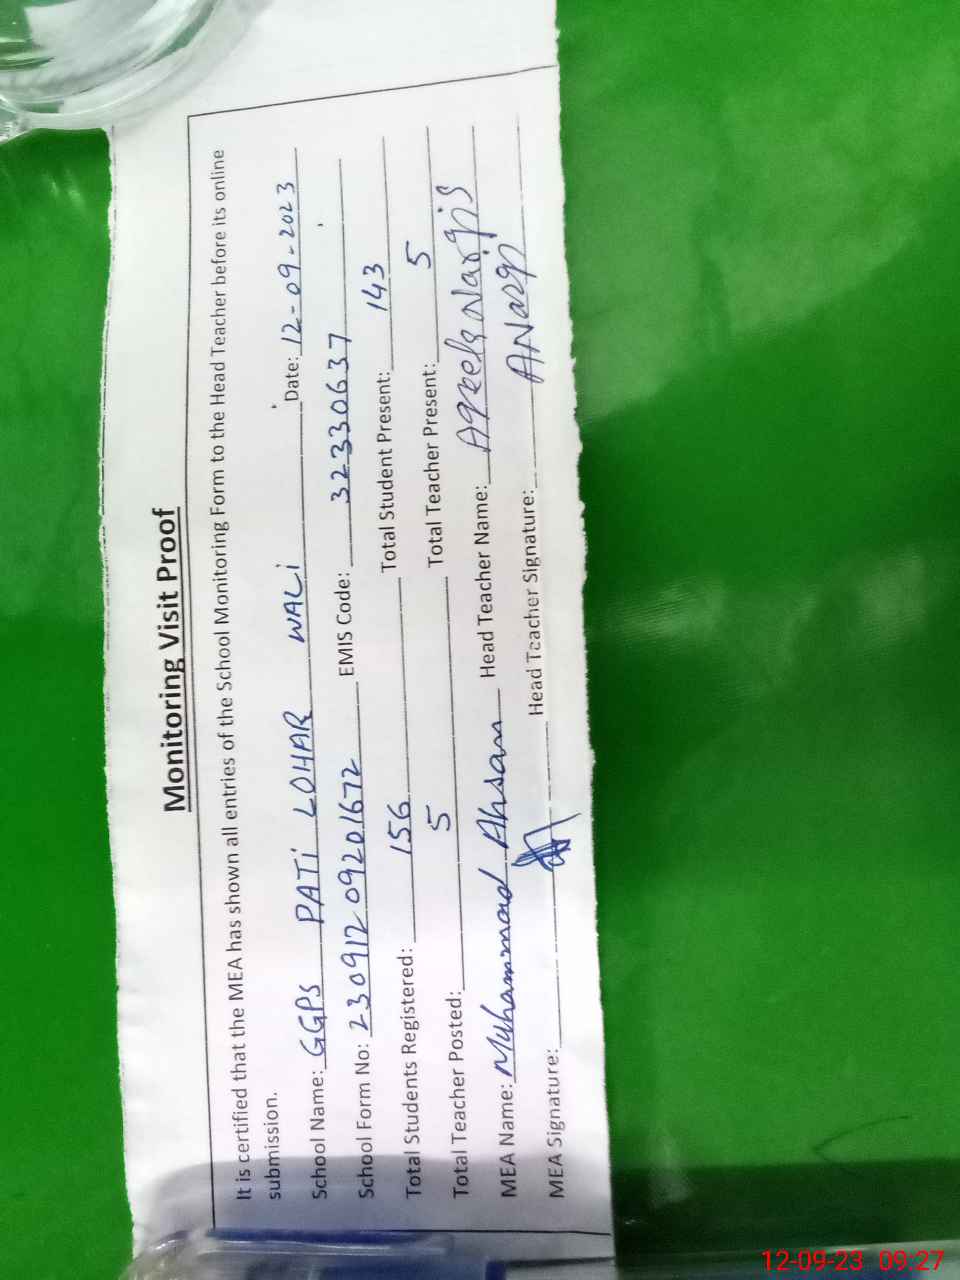 Monitoring Visit Proof
It is certified that the MEA has shown all entries of the School Monitoring Form to the Head Teacher before its online
submission.
School Name: GGPS PATI LOHAR WALI Date: 12-09-2023
School Form No: 230912 09201672 EMIS Code: 32330637
Total Students Registered: 156 Total Student Present: 143
Total Teacher Posted: 5 Total Teacher Present: 5
MEA Name: Muhammad Ahsan Head Teacher Name: Aqeela Nargis
MEA Signature: Head Teacher Signature:
12-09-23 09:27